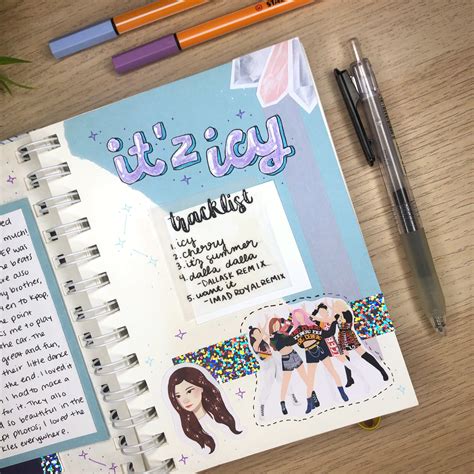 much!
EP was
beats
brother,
to kpop.
paint
me to play
the car. The
great and fun,
their little dance
the end. I loved it
I had to make a
for it. They also
so beautiful in the
photos, I loved the
everywhere.
it'z icy
tracklist
1. icy
2. cherry
3. it'z summer
4. dalla dalla
-DALLASK REMIX
5. want it
-IMAD ROYAL REMIX